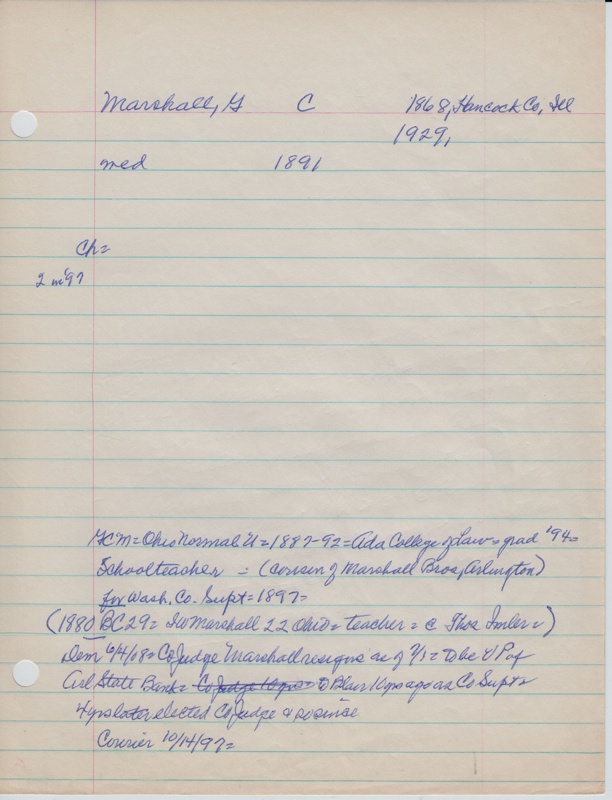 Marshall, G C 1868, Hancock Co, Ill
1929,
med 1891
Ch=
2 m '97
GCM = Ohio Normal U = 1887-92 = Ada College of Law = grad '94 =
Schoolteacher = (cousin of Marshall Bros, Arlington)
for Wash. Co. Supt = 1897 =
(1880 BC 29 = Marshall 22 Ohio = teacher = c Thos Imler =)
Dem 6/4/08 = Co Judge Marshall resigns as of 7/1 = to be V P of
Arl State Bank = Co Judge 10 yrs = to Blair 14 yrs ago as Co Supt &
4 yrs later elected Co Judge & so since
Courier 10/14/97 =